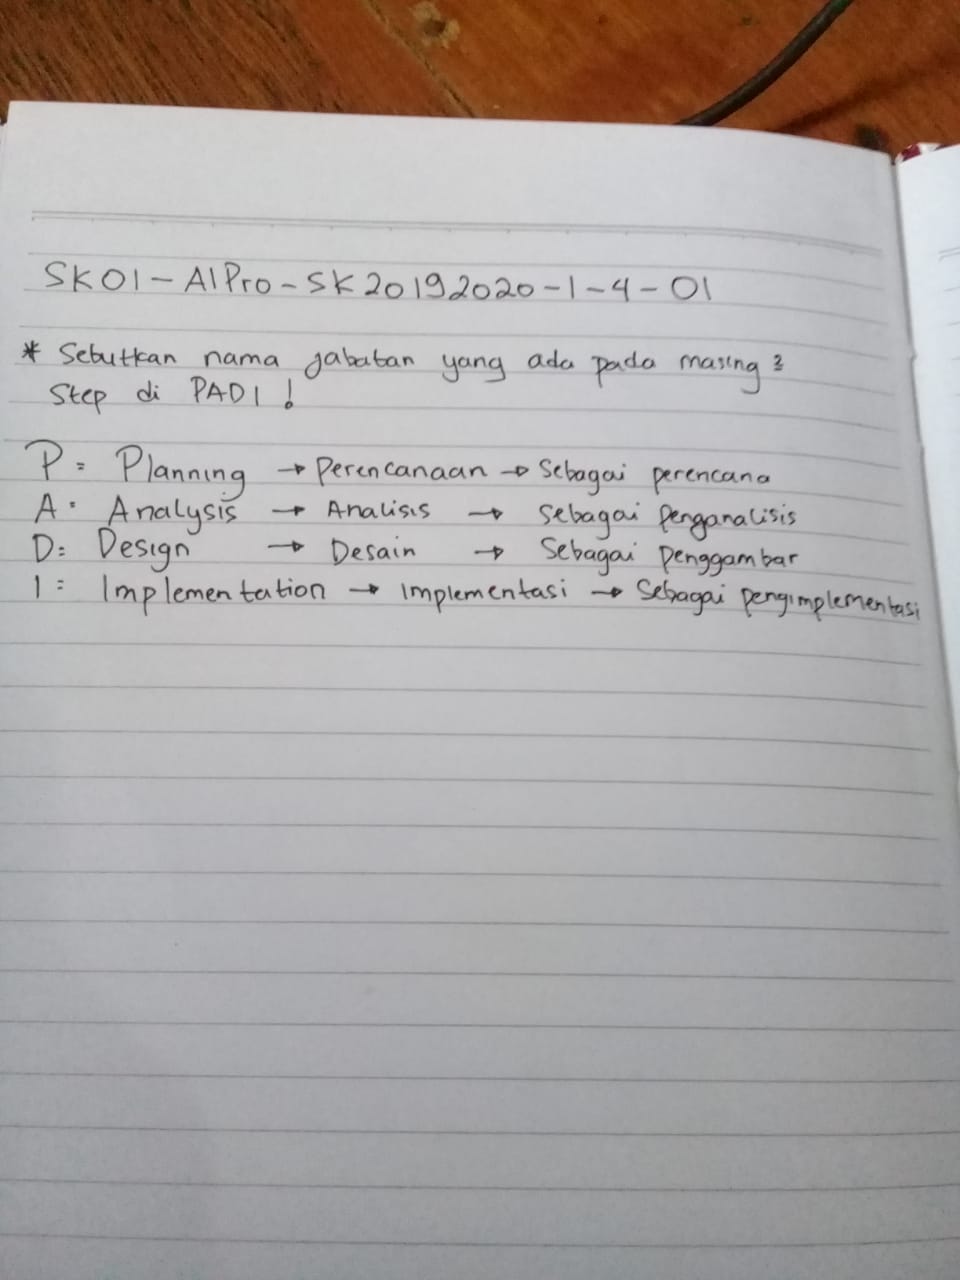 SK01-AlPro-SK20192020-1-4-01
* Sebutkan nama jabatan yang ada pada masing2
Step di PADI !
P = Planning → Perencanaan → Sebagai perencana
A = Analysis → Analisis → Sebagai penganalisis
D = Design → Desain → Sebagai penggambar
I = Implementation → Implementasi → Sebagai pengimplementasi